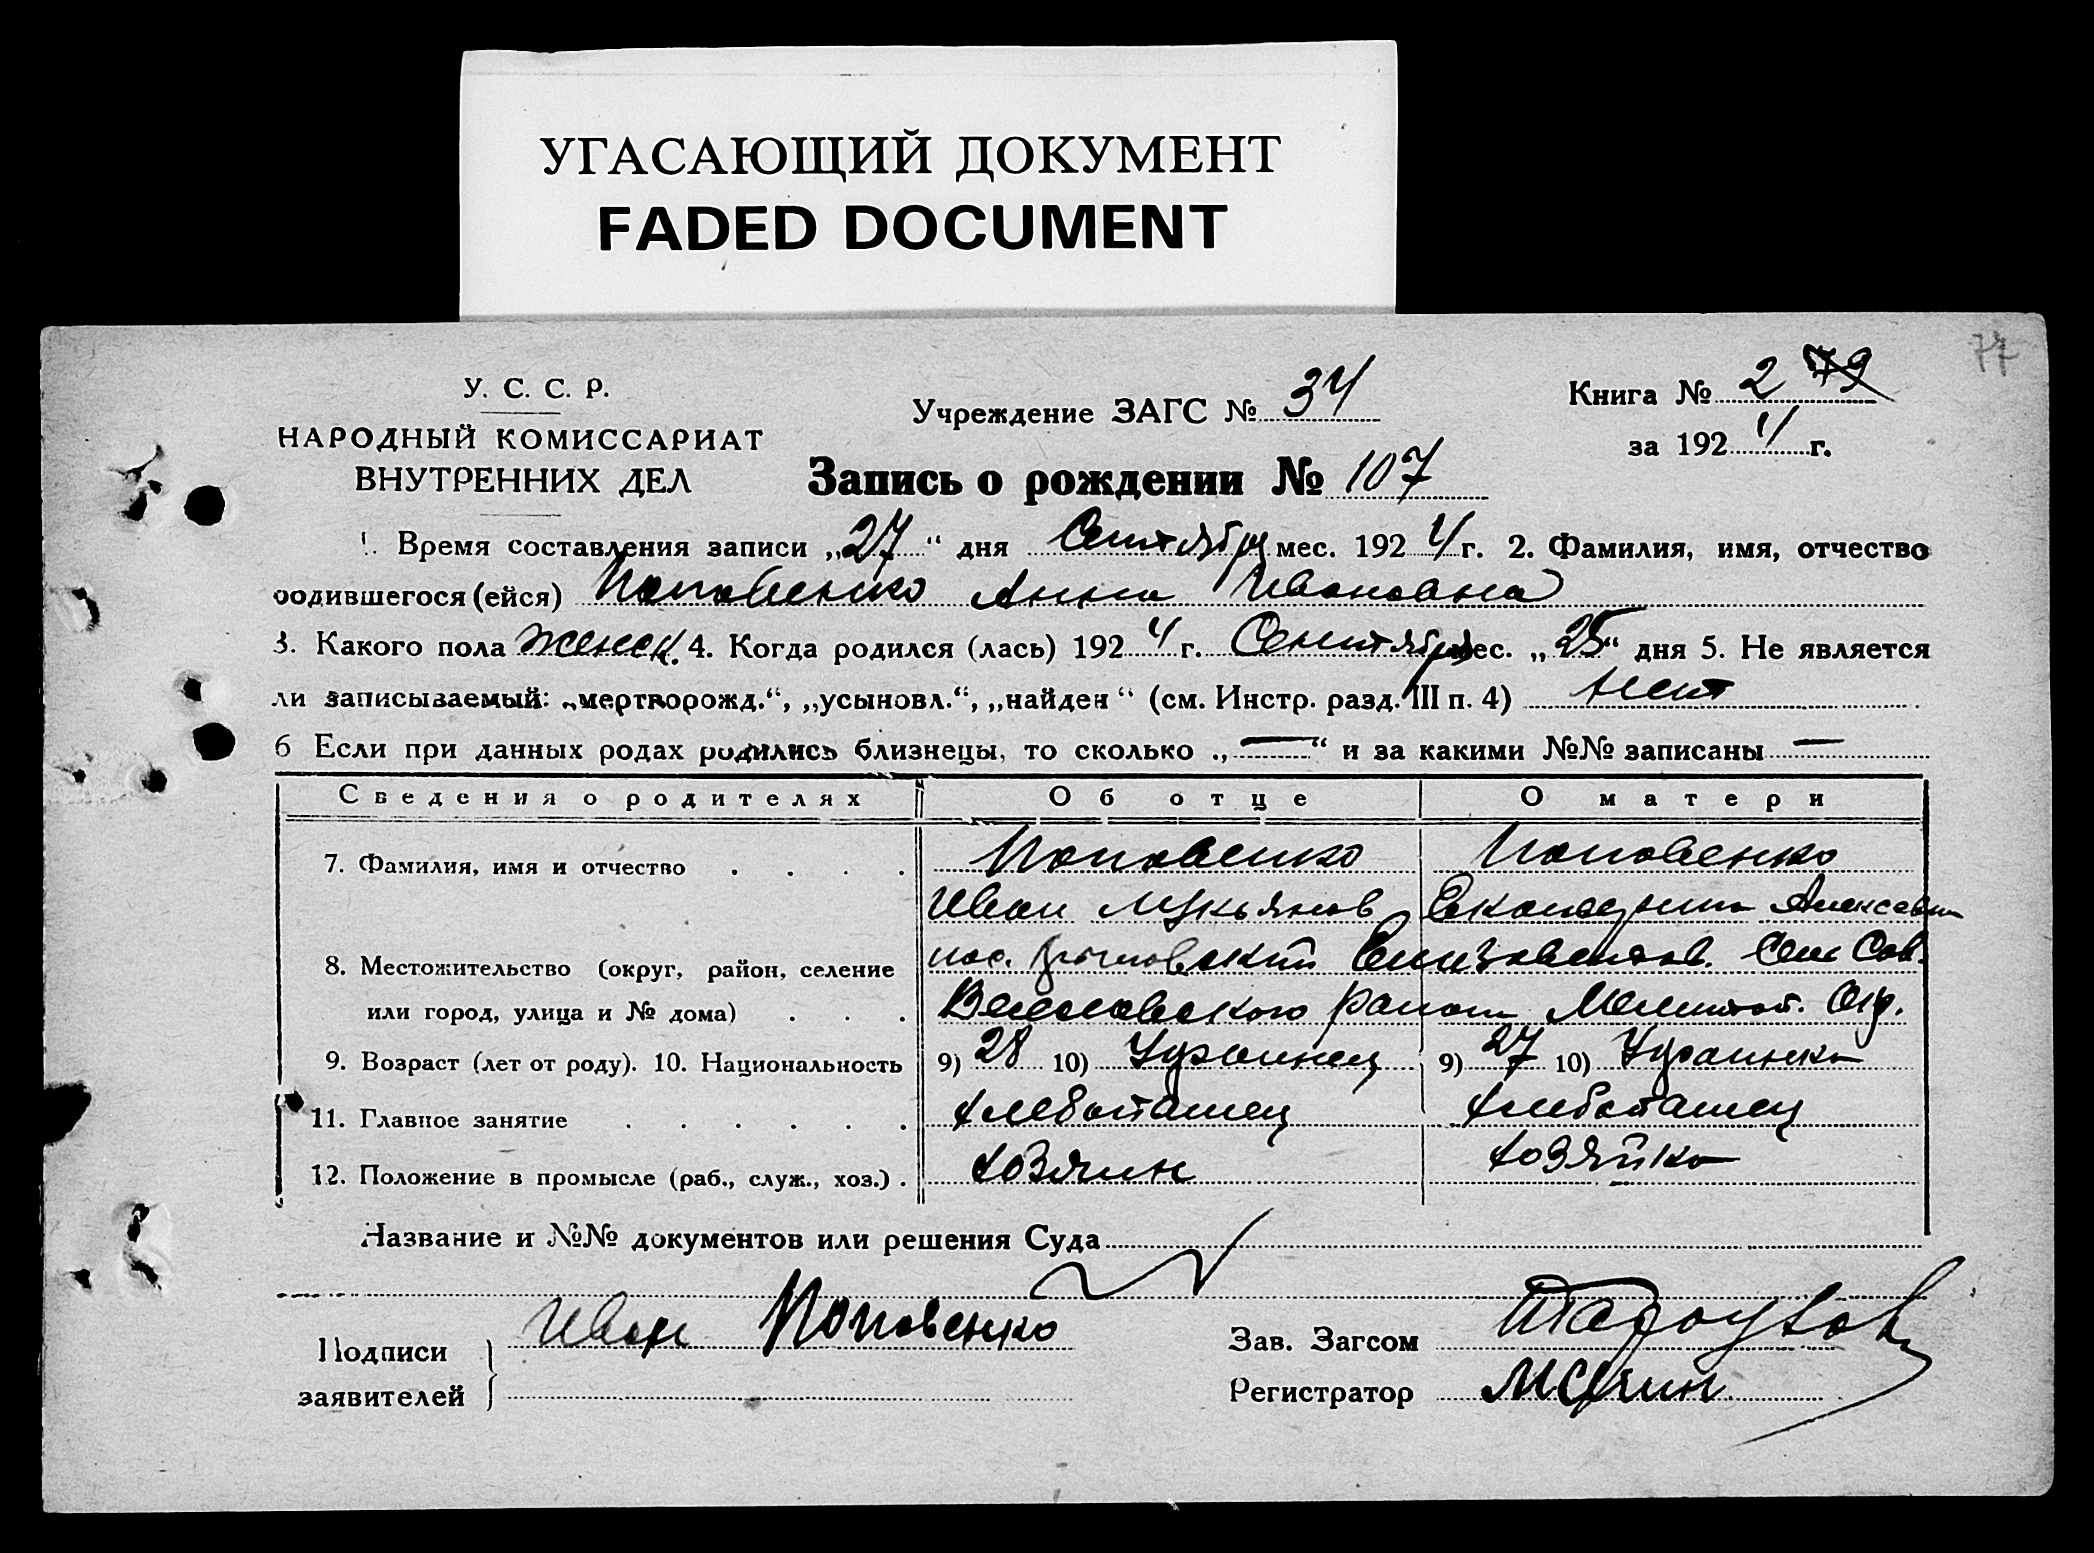 УГАСАЮЩИЙ ДОКУМЕНТ
FADED DOCUMENT
77
У. С. С. Р.
НАРОДНЫЙ КОМИССАРИАТ
ВНУТРЕННИХ ДЕЛ
Учреждение ЗАГС № 34
Книга № 2 79
за 1924 г.
Запись о рождении № 107
1. Время составления записи „27“ дня Сентября мес. 1924 г. 2. Фамилия, имя, отчество
родившегося (ейся) Поповенко Анна Ивановна
3. Какого пола женск. 4. Когда родился (лась) 1924 г. Сентября мес. „25“ дня 5. Не является
ли записываемый: „мертворожд.“, „усыновл.“, „найден“ (см. Инстр. разд. III п. 4) нет
6 Если при данных родах родились близнецы, то сколько „—“ и за какими №№ записаны —
Сведения о родителях Об отце О матери
7. Фамилия, имя и отчество . . . . Поповенко Поповенко
Иван Лукьянов Екатерина Алексеевн
8. Местожительство (округ, район, селение пос. Елизаветов. Сель Сов.
или город, улица и № дома) . . . Веселовского района Мелитоп. Окр.
9. Возраст (лет от роду). 10. Национальность 9) 28 10) Украинец 9) 27 10) Украинка
11. Главное занятие . . . . . . хлебопашец хлебопашец
12. Положение в промысле (раб., служ., хоз.) . хозяин хозяйка
Название и №№ документов или решения Суда
Подписи заявителей Иван Поповенко
Зав. Загсом
Регистратор